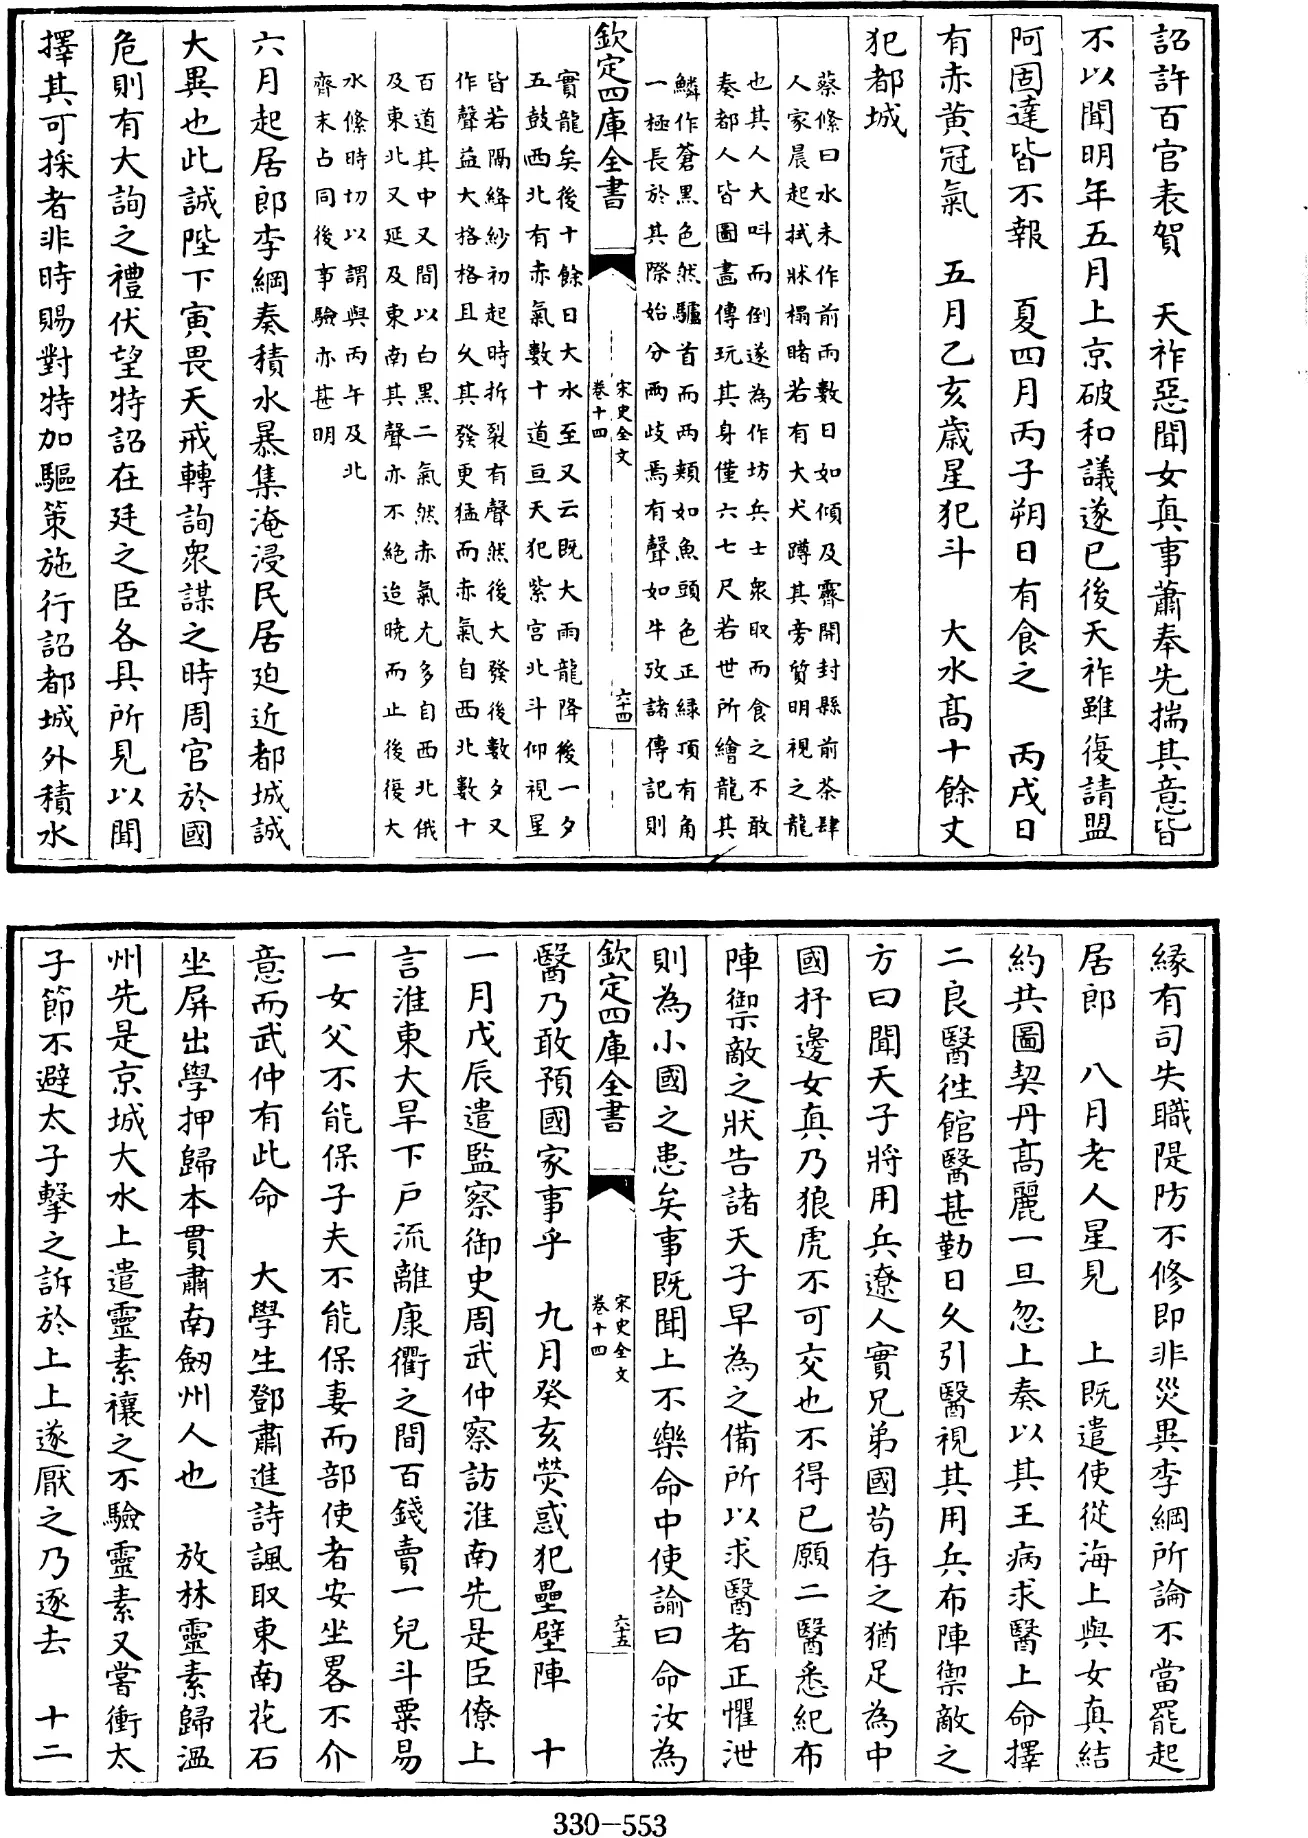 詔許百官表賀　天祚惡聞女真事蕭奉先揣其意皆
不以聞明年五月上京破和議遂已後天祚雖復請盟
阿固達皆不報　夏四月丙子朔日有食之　丙戌日
有赤黃冠氣　五月乙亥歲星犯斗　大水髙十餘丈
犯都城
蔡絛曰水未作前雨數日如傾及霽開封縣前茶肆
人家晨起拭牀榻睹若有大犬蹲其旁質明視之龍
也其人大呌而倒遂為作坊兵士衆取而食之不敢
奏都人皆圖畫傳玩其身僅六七尺若世所繪龍其
鱗作蒼黑色然驢首而兩頰如魚頭色正緑頂有角
一極長於其際始分兩歧焉有聲如牛攷諸傳記則
欽定四庫全書
宋史全文
卷十四
六十四
實龍矣後十餘日大水至又云既大雨龍降後一夕
五鼓西北有赤氣數十道亘天犯紫宮北斗仰視星
皆若隔絳紗初起時拆裂有聲然後大發後數夕又
作聲益大格格且久其發更猛而赤氣自西北數十
百道其中又間以白黑二氣然赤氣尤多自西北俄
及東北又延及東南其聲亦不絶迨曉而止後復大
水絛時切以謂與丙午及北
齊末占同後事驗亦甚明
六月起居郎李綱奏積水暴集淹浸民居廹近都城誠
大異也此誠陛下寅畏天戒轉詢衆謀之時周官於國
危則有大詢之禮伏望特詔在廷之臣各具所見以聞
擇其可採者非時賜對特加驅策施行詔都城外積水
縁有司失職隄防不修即非災異李綱所論不當罷起
居郎　八月老人星見　上既遣使從海上與女真結
約共圖契丹髙麗一旦忽上奏以其王病求醫上命擇
二良醫徃館醫甚勤日久引醫視其用兵布陣禦敵之
方曰聞天子將用兵遼人實兄弟國茍存之猶足為中
國抒邊女真乃狼虎不可交也不得已願二醫悉紀布
陣禦敵之狀告諸天子早為之備所以求醫者正懼泄
則為小國之患矣事既聞上不樂命中使諭曰命汝為
欽定四庫全書
宋史全文
卷十四
六十五
醫乃敢預國家事乎　九月癸亥熒惑犯壘壁陣　十
一月戊辰遣監察御史周武仲察訪淮南先是臣僚上
言淮東大旱下戸流離康衢之間百錢賣一兒斗粟易
一女父不能保子夫不能保妻而部使者安坐畧不介
意而武仲有此命　大學生鄧肅進詩諷取東南花石
坐屏出學押歸本貫肅南劒州人也　放林靈素歸溫
州先是京城大水上遣靈素禳之不驗靈素又嘗衝太
子節不避太子擊之訴於上上遂厭之乃逐去　十二
330-553